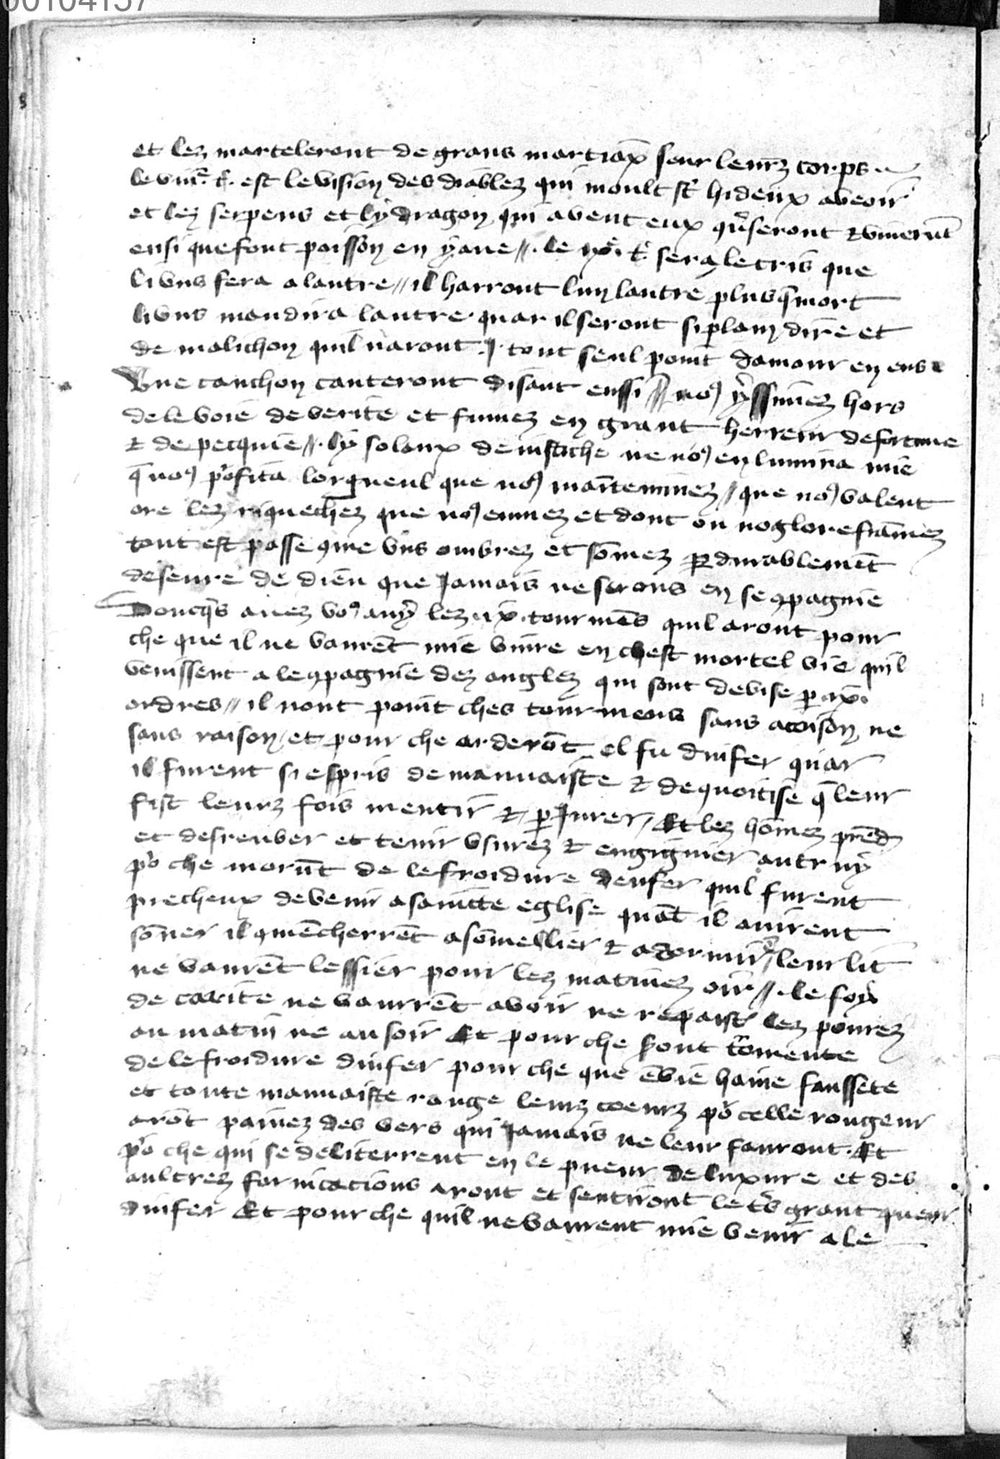 00104137
et lez marteleront de grans martiax seur leurz corps
le viiie t̃. est le vision des diablez qui moult st̃ hideux a veoir
et lez serpens et ly dragon qui avent eux q̃ seront & viveront
ensi que font poisson en yaue // le ixe t̃ sera le cris que
li vns fera a lautre // il harront lun lautre plus q̃ mort
li vns maudira lautre quar il seront si plain dire et
de malichon quil naront .j. tout seul point damour en eus
Une canchon canteront disant enssi // no9 yssimez hors
de le voie de verite et fumez en grant herreur de fortune
& de pecquie // ly solaux de iustiche ne no9 enlumina mie
q̃ no9 profita lorgueul que no9 mainteniimez // que no9 valent
ore lez riquechez que no9 eumez et dont on no glorefiamez
tout est passe 9me vns ombrez et somez pardurablement
deseure de dieu que jamais ne serons en se 9pagnie
Doncq̃s avez vo9 auy lez ix tourmes quil aront pour
che que il ne vaurẽt mie viure en chest mortel vie quil
venissent a le 9pagnie dez anglez qui sont devise par ix
ordres // il nont point ches tourmens sans acoison ne
sans raison et pour che arderõt el fu dinfer quar
il furent si espris de mauvaiste & de quoitise q̃ leur
fist leurz fois mentir & parjurer / Et lez homez prẽd
et desreuber et tenir vsurez & engignier autruy
po che morũt de le froidure denfer quil furent
precheux de venir a saincte eglise quãt il auirent
soner il 9mẽcherrẽt a somellier & a dormir / leur lit
ne vaurẽt lessier pour lez matinez oir // le foy
de carite ne vaurrẽt avoir ne repaist̃ lez pourez
au matin ne au soir Et pour che sont t̃omente
de le froidure dinfer pour che que ẽvie haine faussete
et toute mauvaiste range leurz coeurz po celle rougeur
arõt painez des vers qui jamais ne leur fauront. Et
po che qui se deliterrent en le pueur de luxure et des
aultrez fornicacions aront et sentiront le tr̃s grant pueur
dinfer Et pour che quil ne vaurent mie venir a le